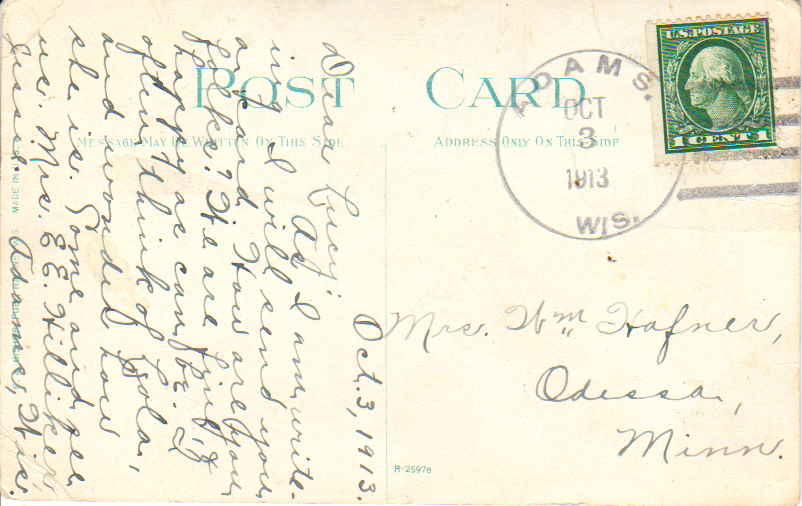 POST CARD
MESSAGE MAY BE WRITTEN ON THIS SIDE
ADDRESS ONLY ON THIS SIDE
ADAMS.
OCT
3
1913
WIS.
U.S. POSTAGE
1 CENT 1
Oct. 3, 1913.
Dear Lucy:
As I am write-
ing I will send you
a card. How are you
folks? We are fine &
happy as can be. I
often think of Lola,
and wonder how
she is. Come and see
us. Mrs. E.E. Hilliker,
Adams, Wis.
Mrs. Wm Hafner,
Odessa,
Minn.
R-25978
MADE IN